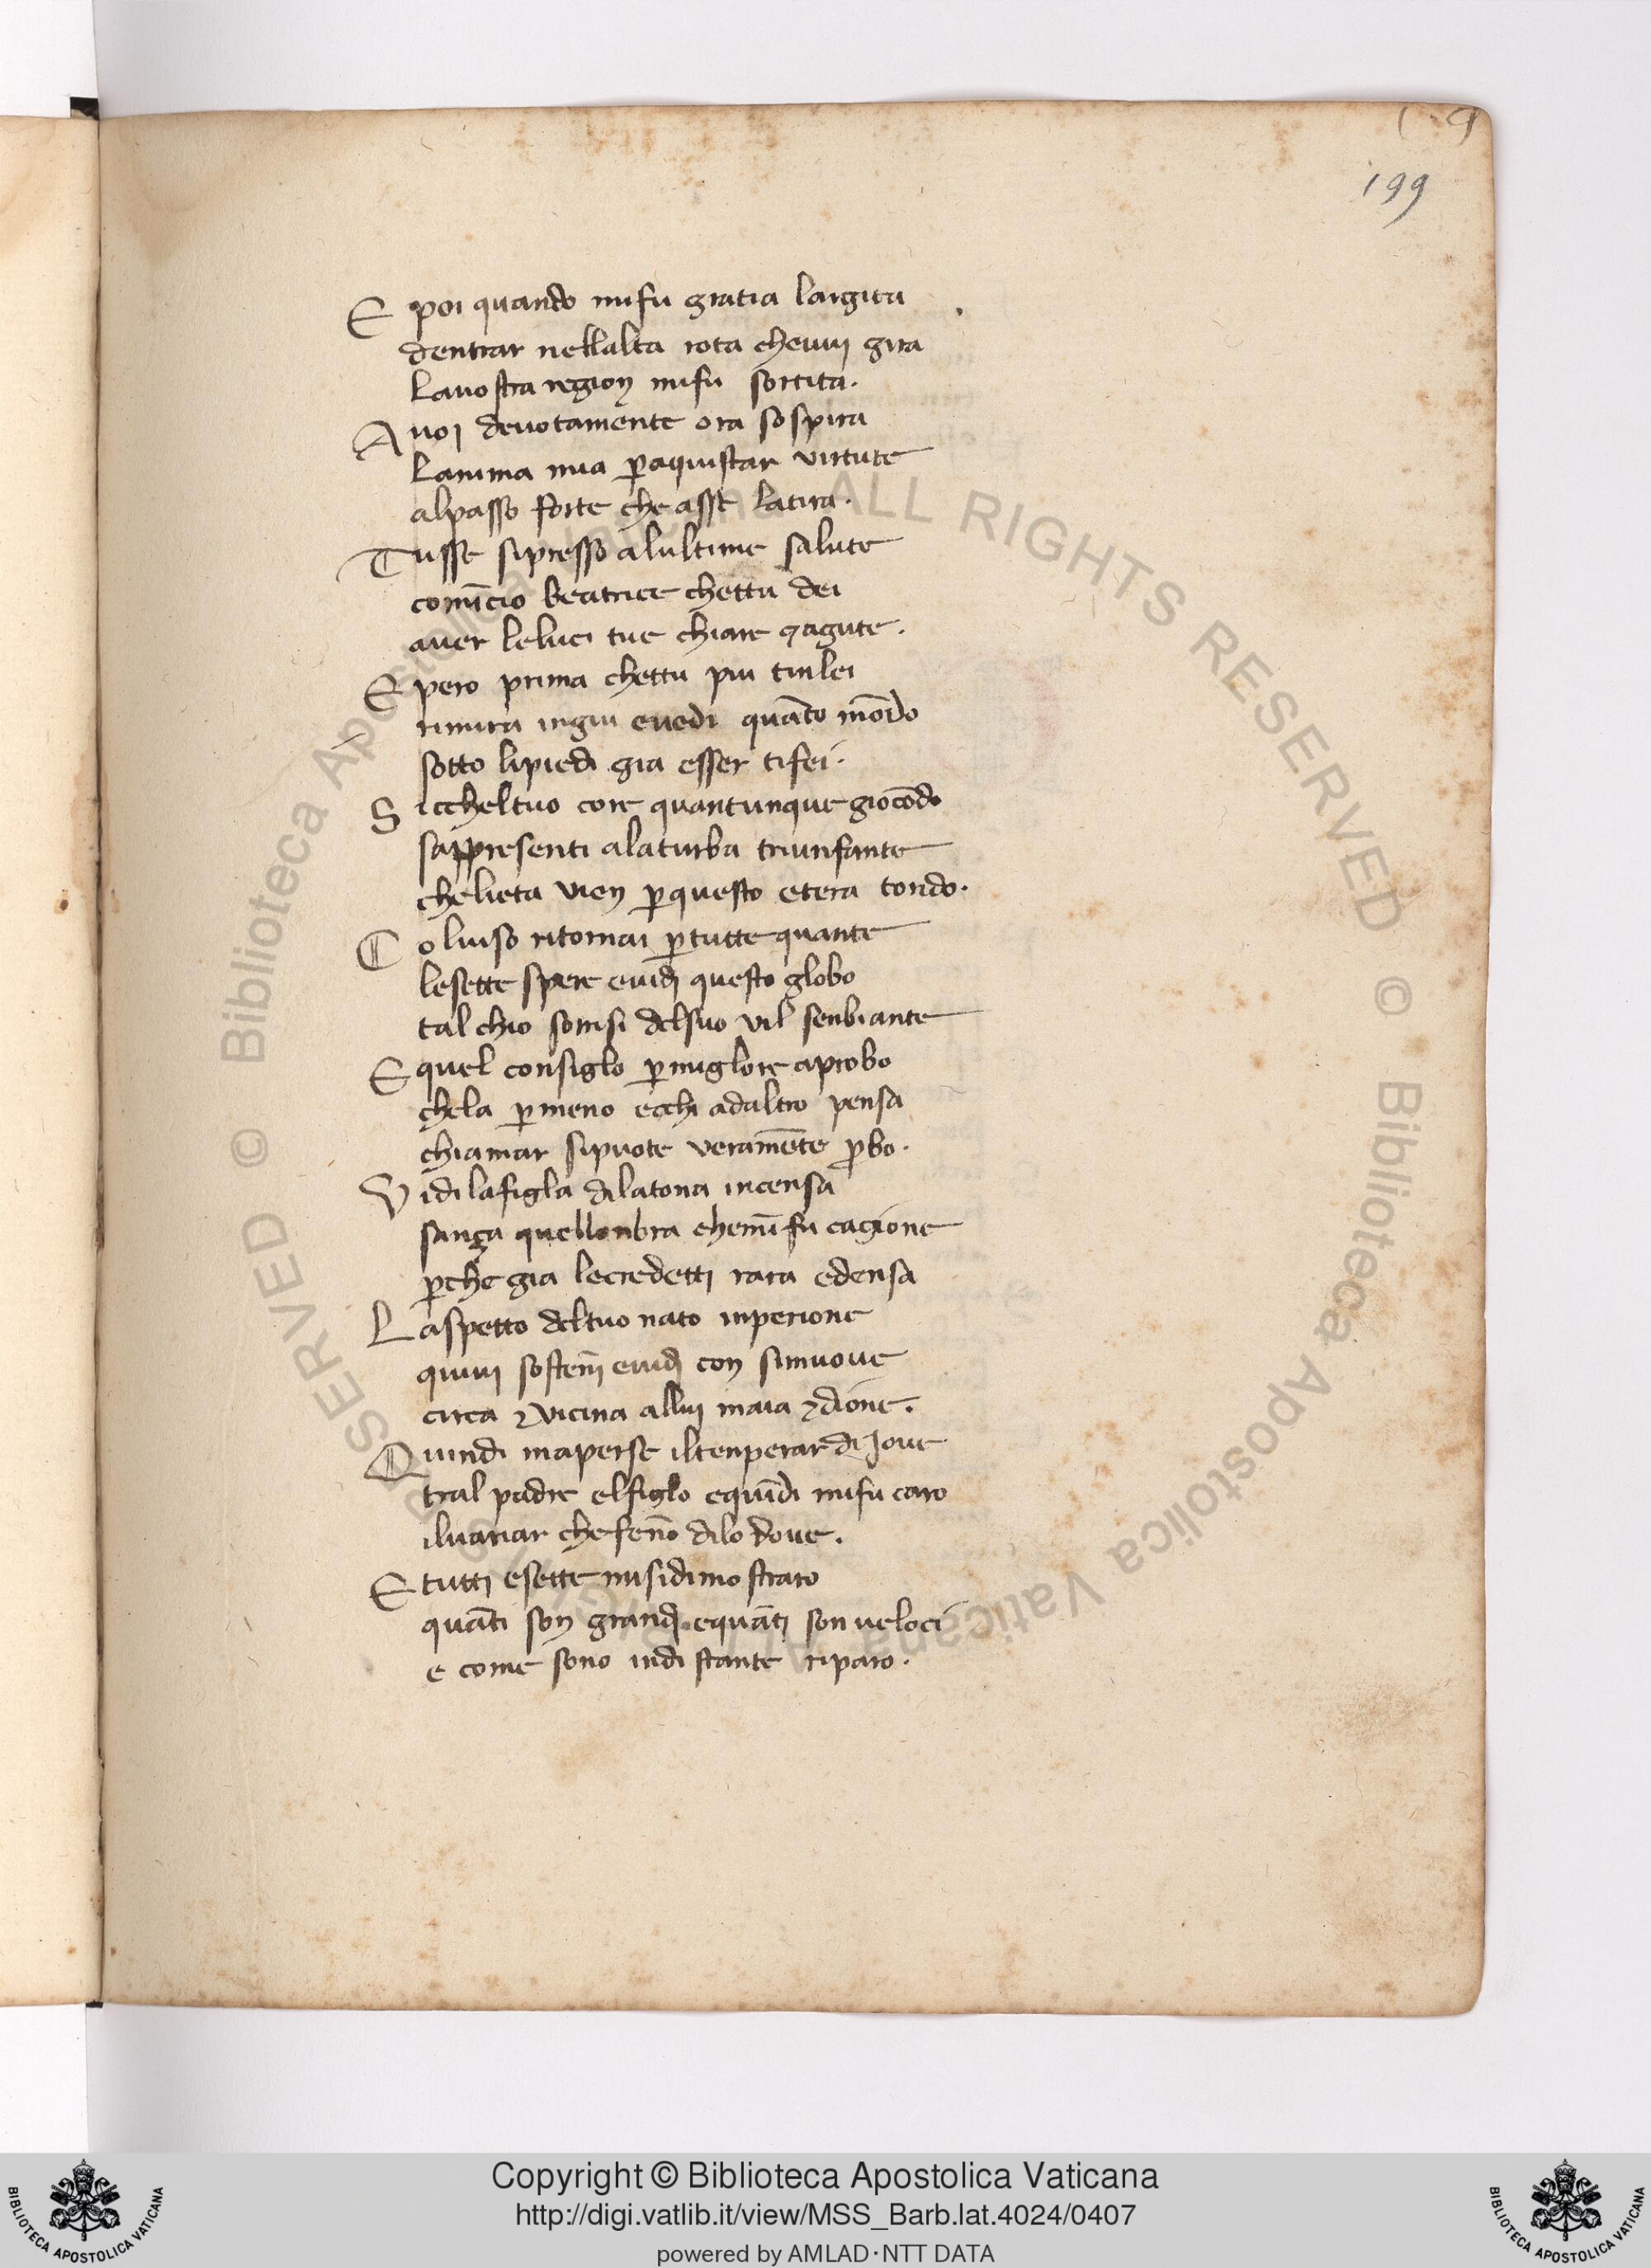 199
E poi quando mifu gratia largita
dentrar nellalta rota cheuui gira
lauostra region mifu sortita.
A uoi deuotamente ora sospira
lanima mia p̲aquistar virtute
alpasso forte che asse latira.
Tusse sipresso alultime salute
comīcio beatrice chettu dei
auer leluci tue chiare ⁊agute.
E pero prima chettu piu tinlei
rimira ingiu euedi quāto mōdo
sotto lipiedi gia esser tifei.
S iccheltuo core quantunque giocōdo
sappresenti alaturba triunfante
chelieta vien p̲questo etera tondo.
C oluiso ritornai p̲tutte quante
lesette spere euidi questo globo
tal chio sorrisi delsuo vil senbiante
E quel consiglo p̲miglore aprobo
chela p̲meno ecchi adaltro pensa
chiamar sipuote veramēte p̲bo.
V idi lafigla dilatona incensa
sança quellonbra chemīfu cagione
p̲che gia lecredetti rara edensa
L aspetto deltuo nato inperione
quiui sosteni euidi con simuoue
circa ⁊vicina allui maia ⁊dione.
Quindi maperse iltenperar di Ioue
tral padre elfiglo equīdi mifu caro
iluariar chefēno dilo doue.
E tutti esette misidimostraro
quāti son grandi equāti son ueloci
e come sono indistante riparo.
© Biblioteca Apostolica Vaticana ALL RIGHTS RESERVED
© Biblioteca Apostolica Vaticana ALL RIGHTS RESERVED
Copyright © Biblioteca Apostolica Vaticana
http://digi.vatlib.it/view/MSS_Barb.lat.4024/0407
powered by AMLAD·NTT DATA
BIBLIOTECA APOSTOLICA VATICANA
BIBLIOTECA APOSTOLICA VATICANA